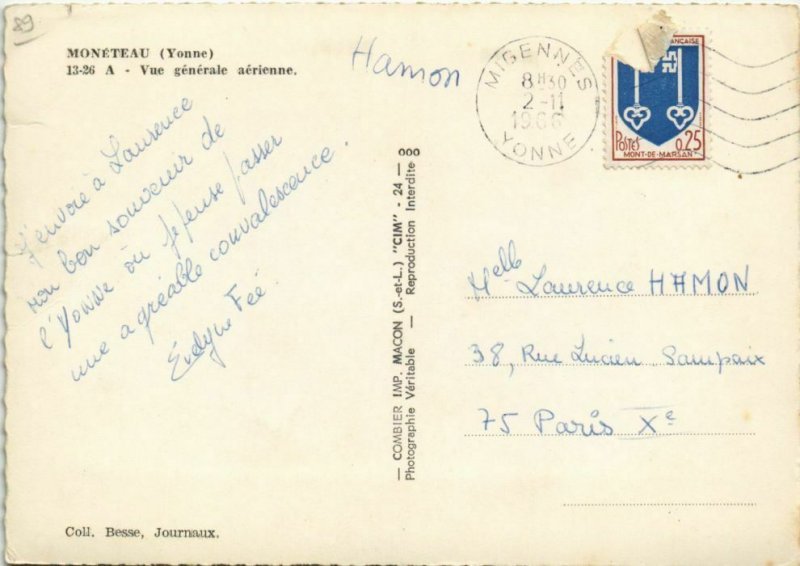 89
MONÉTEAU (Yonne)
13-26 A - Vue générale aérienne.
Hamon
MIGENNES
8H30
2-11
1966
YONNE
ANÇAISE
POSTES 0,25
MONT-DE-MARSAN
J'envoie à Laurence
mon bon souvenir de
l'Yonne où je pense passer
une agréable convalescence.
Évelyne Feé
— COMBIER IMP. MACON (S.-et-L.) "CIM" - 24 — 000
Photographie Véritable — Reproduction Interdite
Melle Laurence HAMON
38, Rue Lucien Sampaix
75 Paris Xe
Coll. Besse, Journaux.